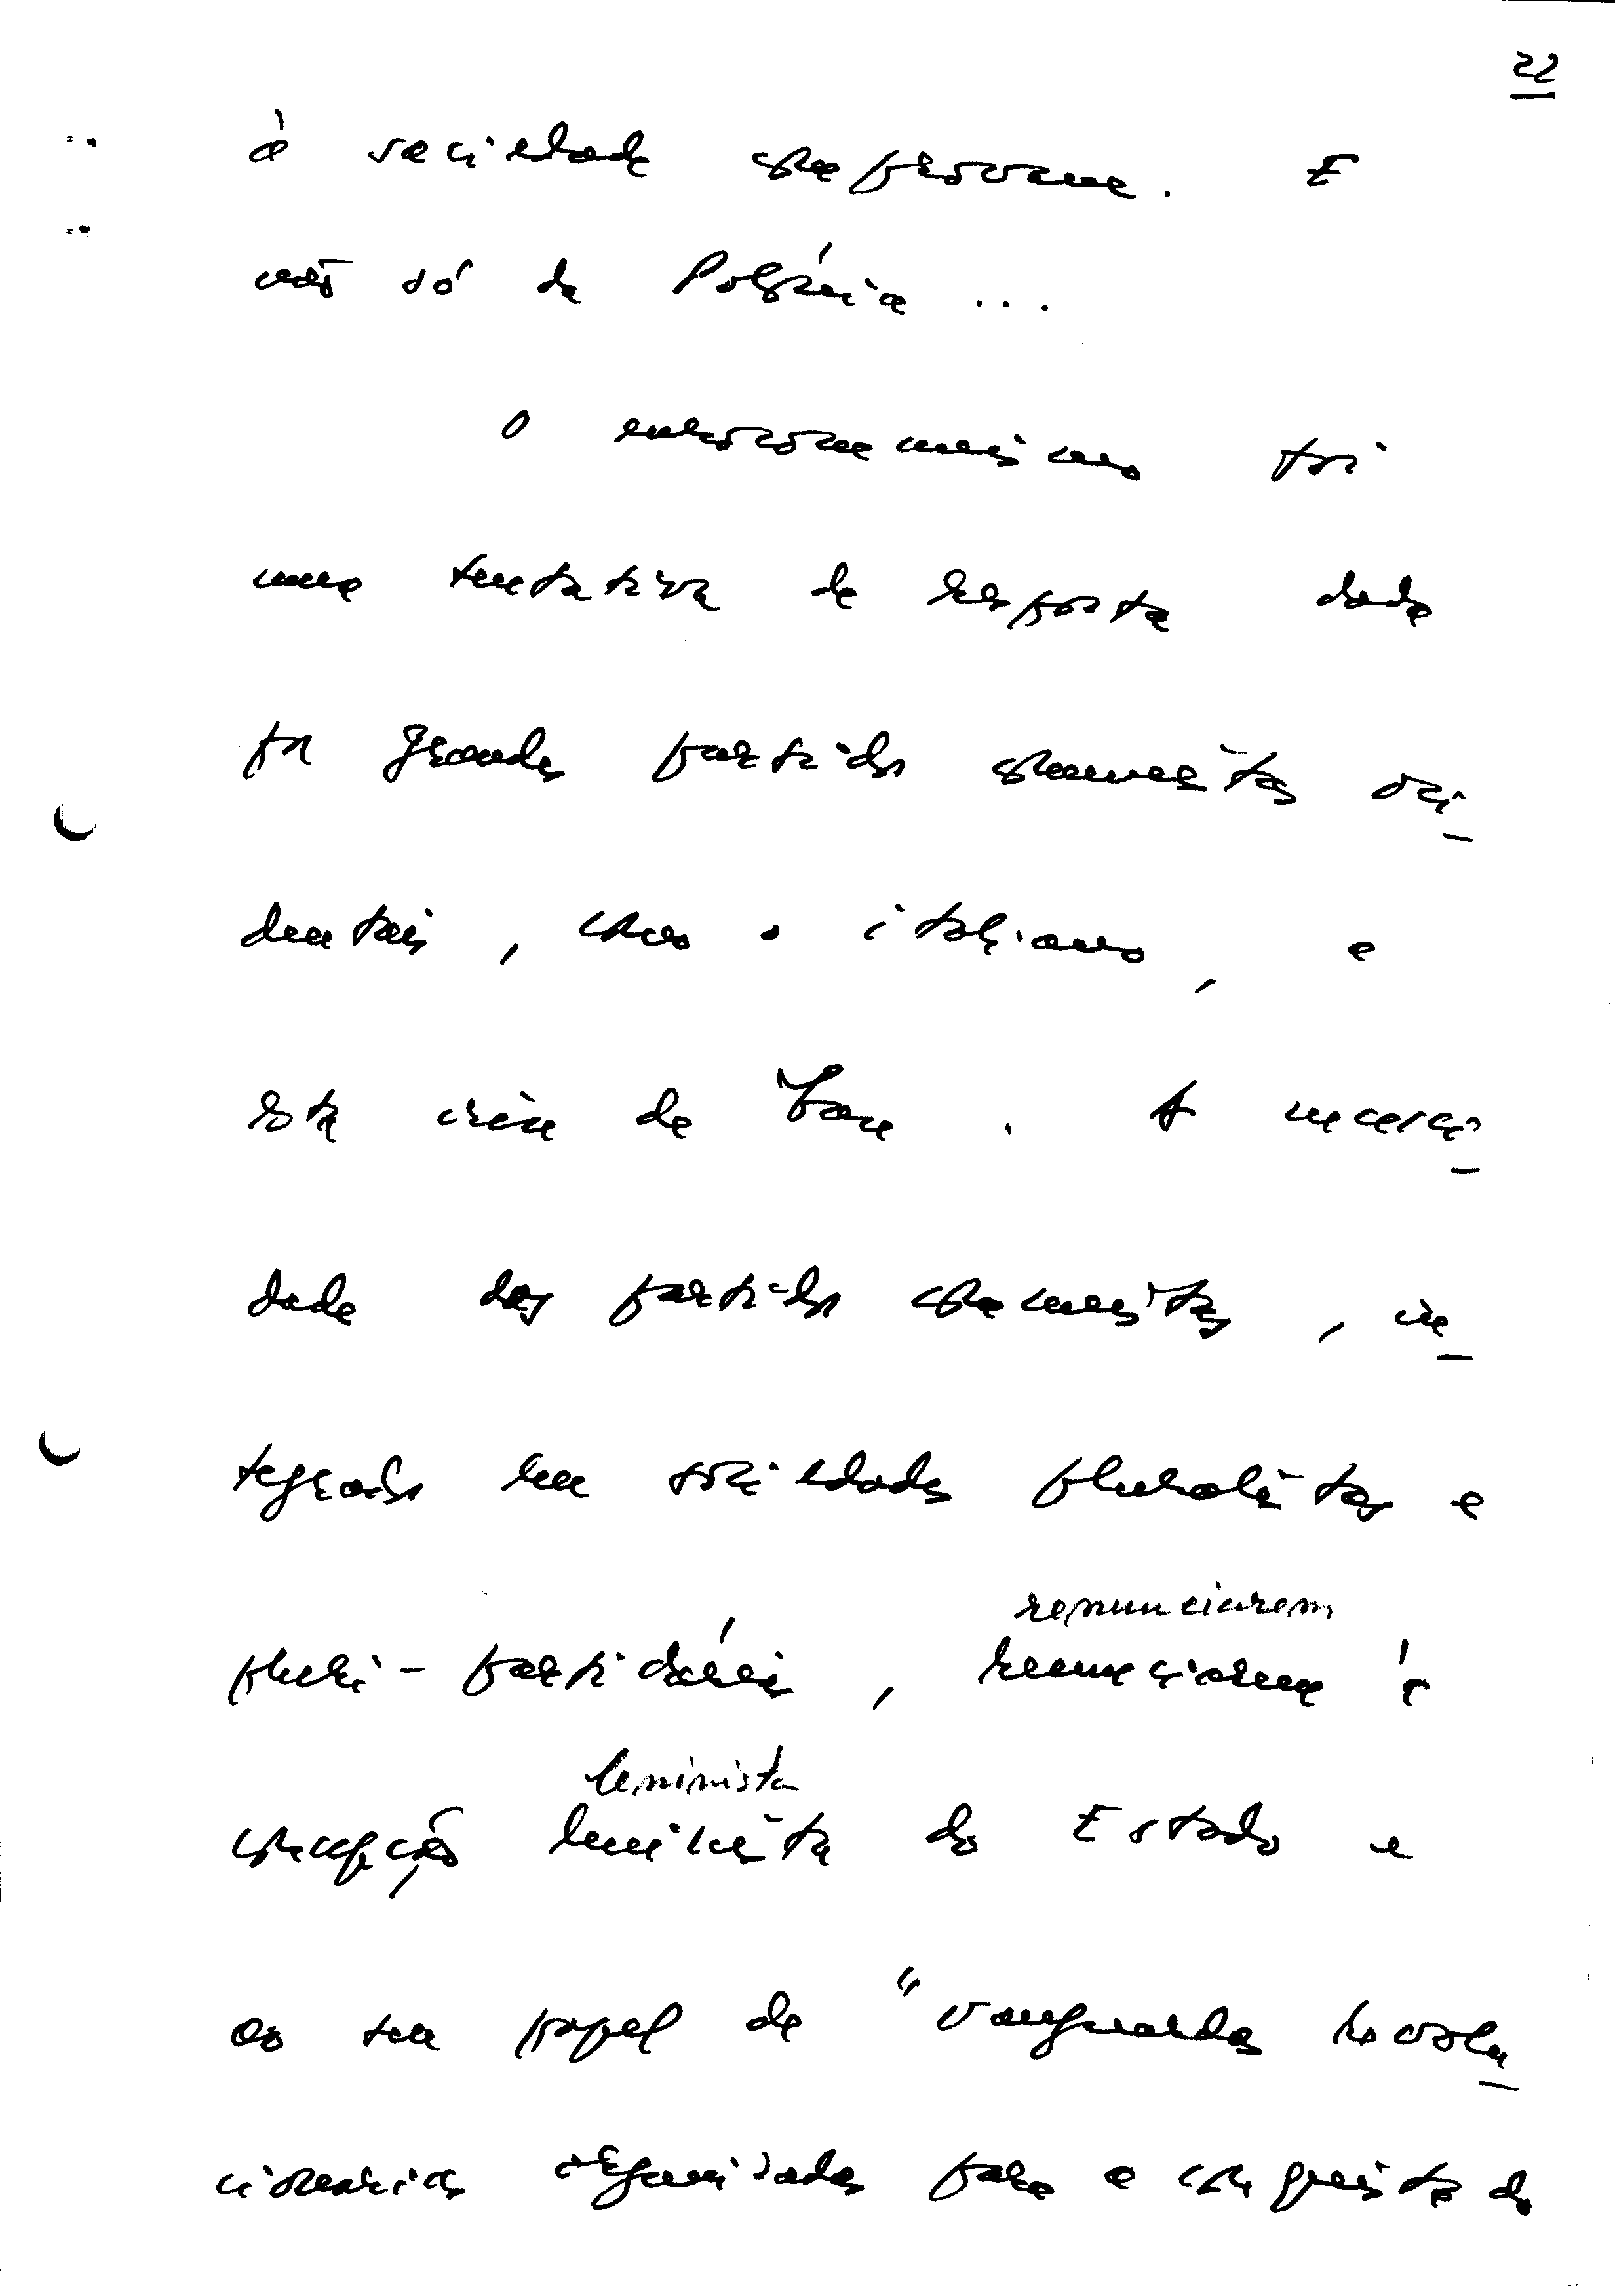 22
à sociedade que provam. E
não só da Polónia ...
O eurocomunismo foi
uma tentativa de resposta dada
por grandes partidos comunistas oci-
dentais, como o italiano, a
esta crise de fora. A necessi-
dade dos partidos comunistas, in-
tegrados em sociedades pluralistas e
pluri-partidárias, renunciarem à
renunciarem
concepção leninista do Estado e
leninista
ao seu papel de "vanguardas revolu-
cionárias organizadas para a conquista do